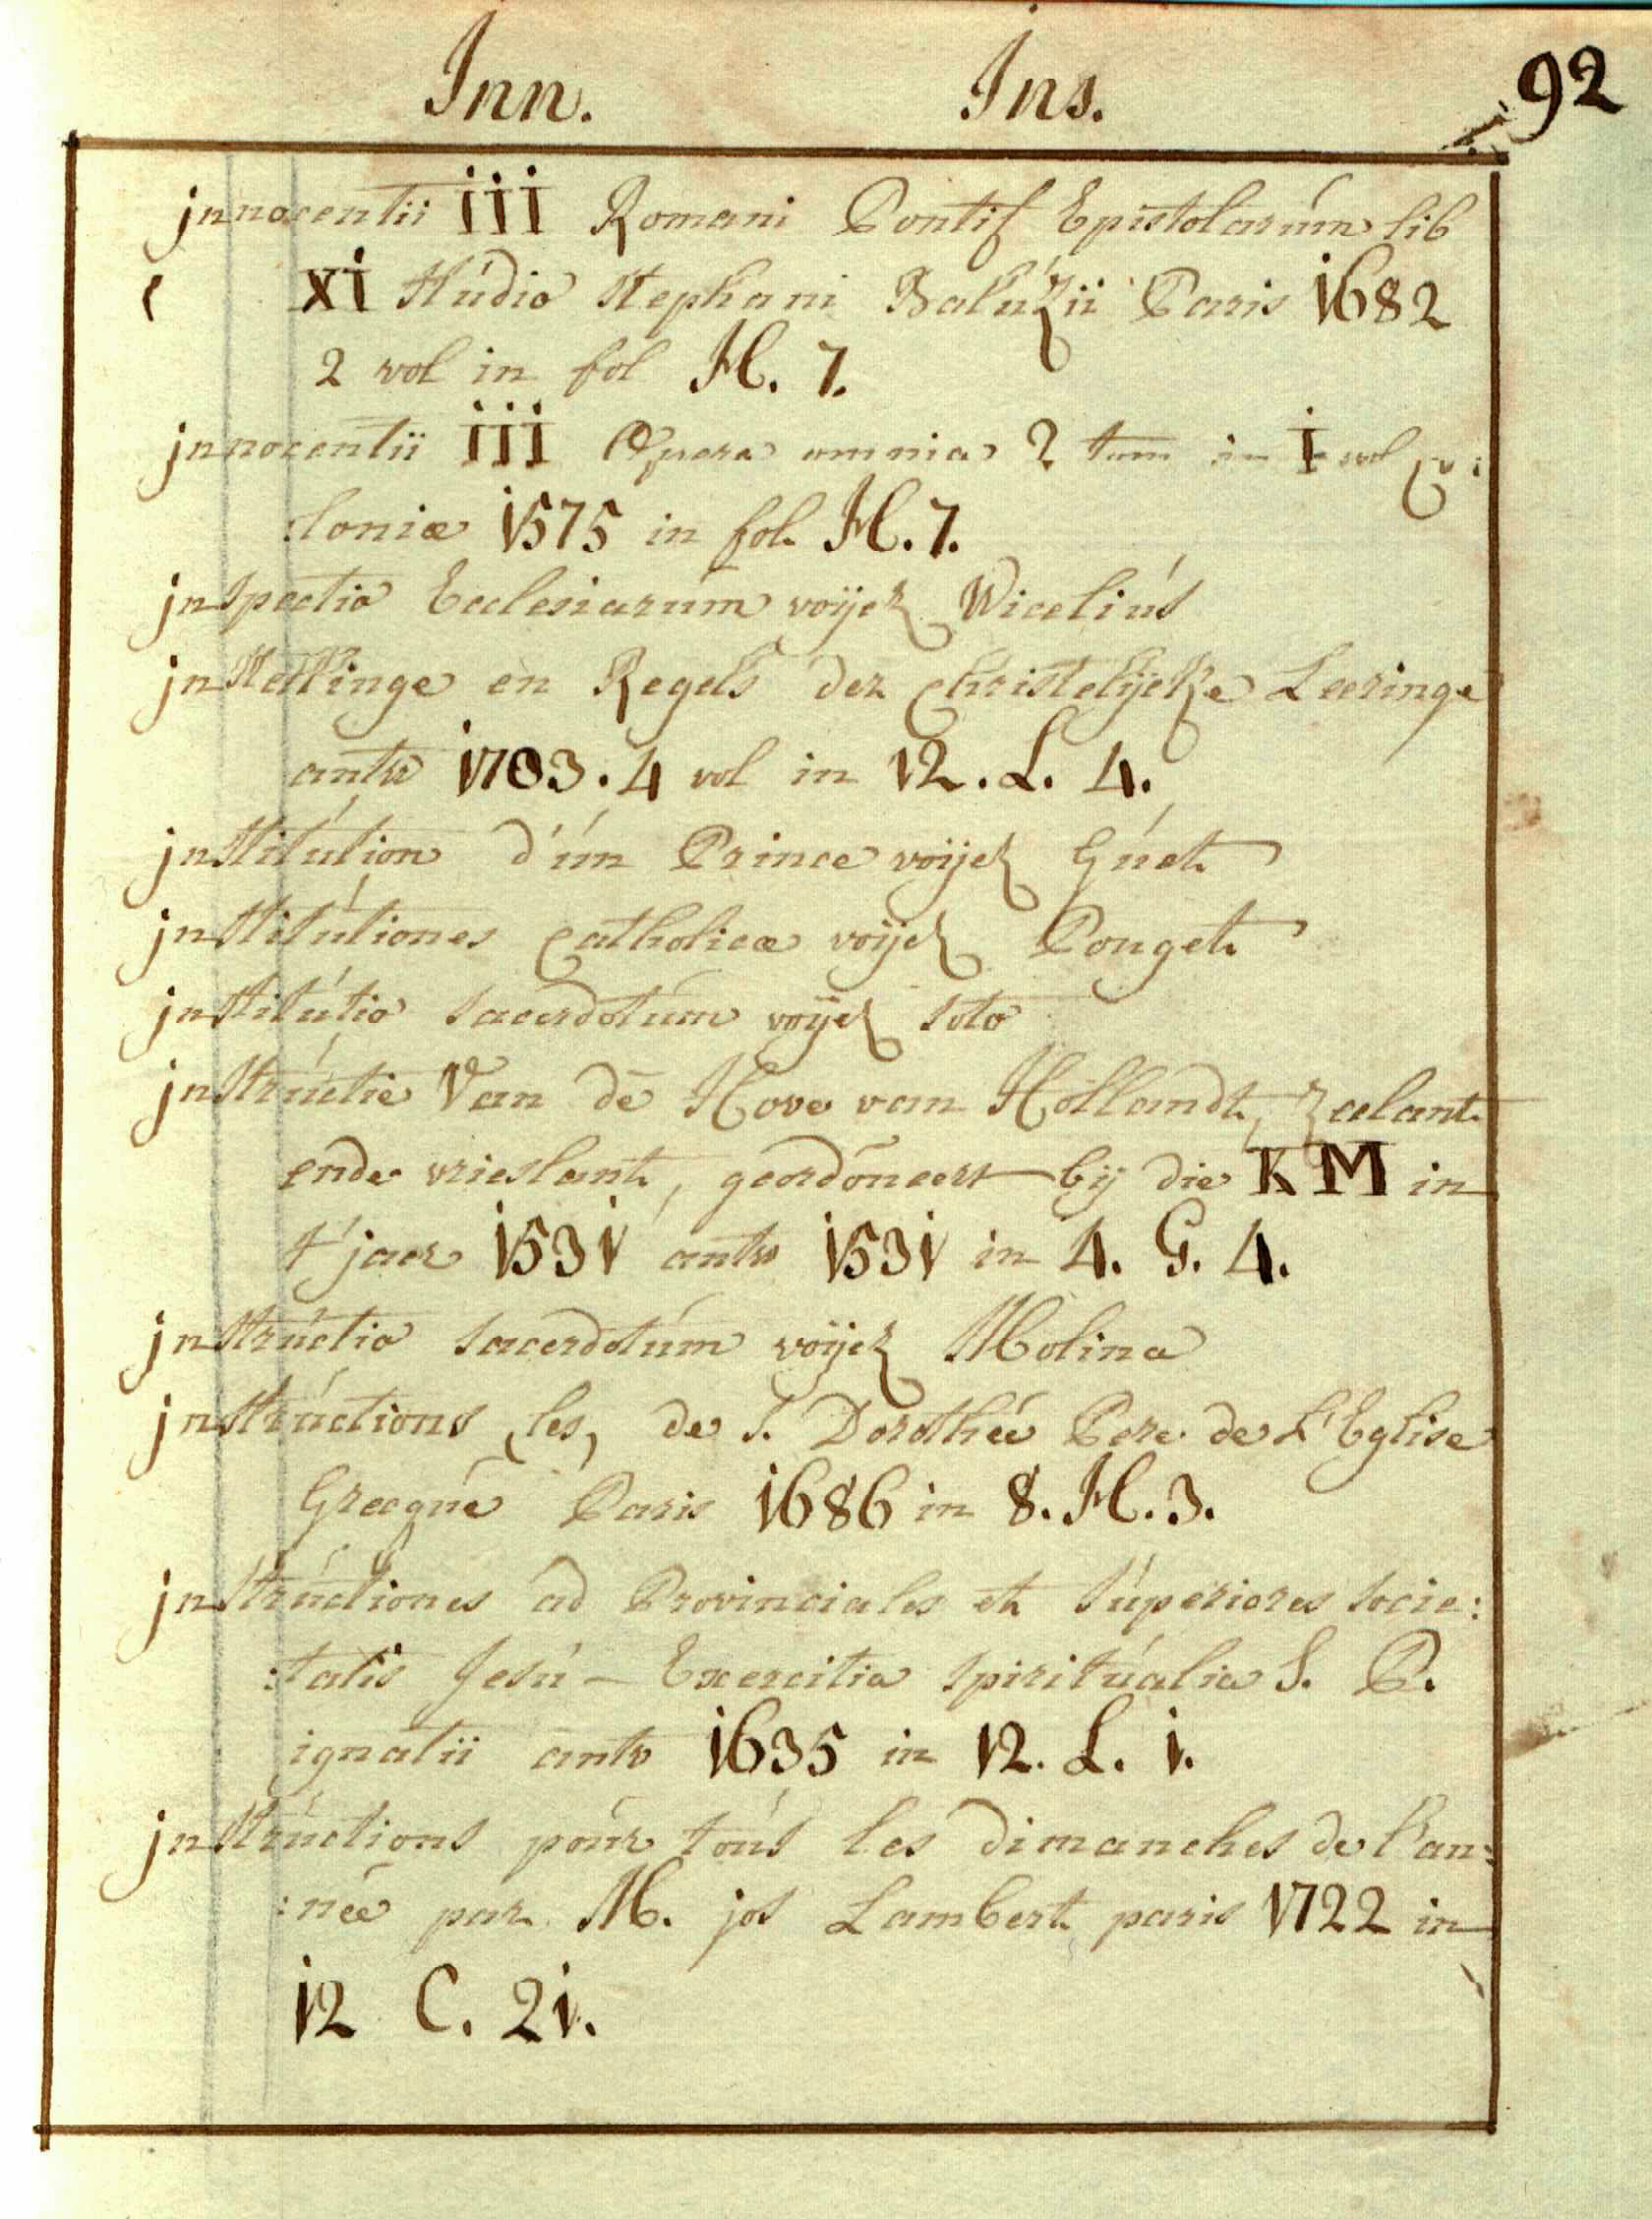 Inn. Ins. 92
jnnocentii iii Romani Pontif Epistolarúm lib
xi Stúdio Stephani Balúzii Paris 1682
2 vol in fol H. 7.
jnnocentii iii Opera omnia 2 tom in I vol Co:
:loniæ 1575 in fol. H. 7.
jnspectio Ecclesiarúm voijez Wiceliús
jnstellinge en Regels der christelijcke Leeringe
antw 1703. 4 vol in 12. L. 4.
jnstitútion d'ún Prince voijez Gúet
jnstitútiones catholicæ voijez Pouget
jnstitútio sacerdotúm voijez soto
jnstrúctie Van dē Hove van Hollandt, zeelant
ende vrieslant, geordōneert bij die K M in
t'jaer 1531 antw 1531 in 4. G. 4.
jnstrúctio sacerdotúm voijez Molina
jnstrúctions, les, de S. Dorothée Pere de L'Eglise
Grecqúe Paris 1686 in 8. H. 3.
jnstrúctiones ad Provinciales et Súperiores Socie:
:tatis Jesú – Exercitia spiritúalia S. P.
ignatii antw 1635 in 12. L. 1.
jnstrúctions poúr toús les dimanches de l'an:
:née par M. jos Lambert paris 1722 in
12 C. 21.